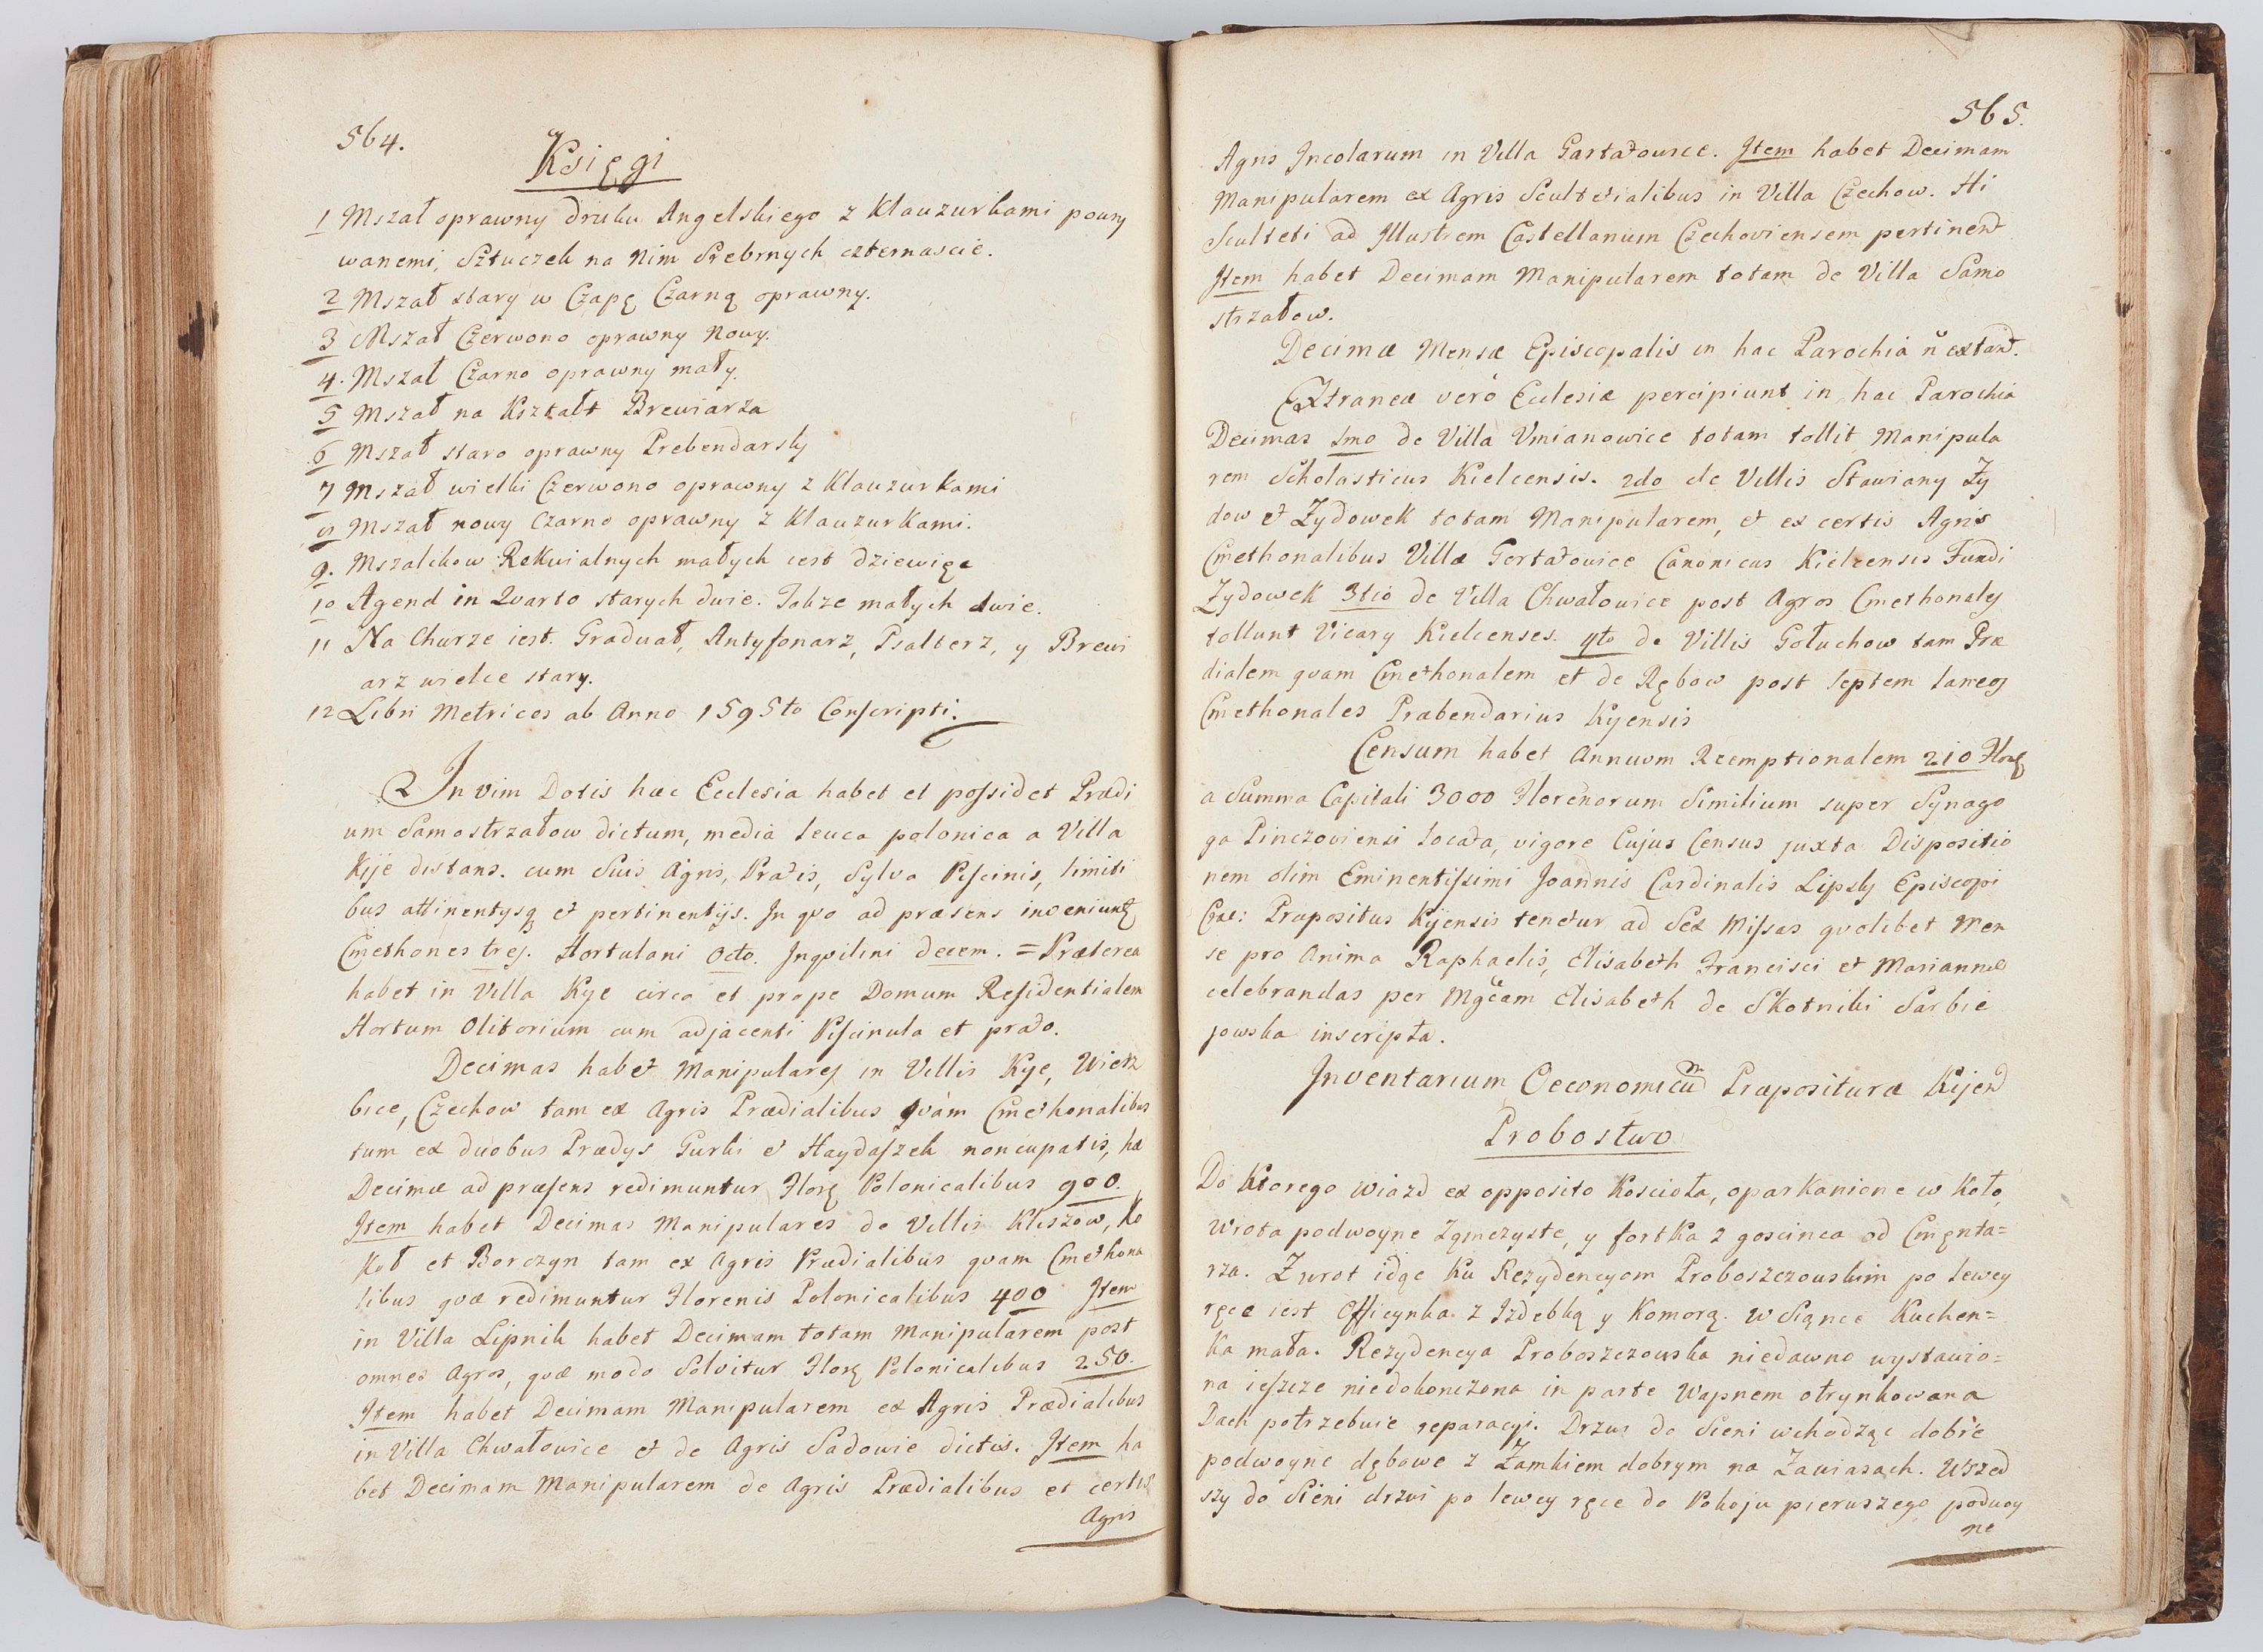 564.
Księgi
1 Mszał oprawny druku Angelskiego z Klauzurkami poury
wanemi, Sztuczek na Nim Srebrnych czternascie.
2 Mszał stary w Czapę Czarną oprawny.
3 Mszał Czerwono oprawny Nowy.
4. Mszał Czarno oprawny mały.
5 Mszał na Kształt Brewiarza
6 Mszał staro oprawny Prebendarsky
7 Mszał wielki Czerwono oprawny z Klauzurkami
8 Mszał nowy Czarno oprawny z Klauzurkami.
9. Mszalikow Rekwialnych małych iest dziewięc
10 Agend in Quarto starych dwie. Takze małych dwie.
11 Na Churze iest. Graduał, Antyfonarz, Psalterz, y Brewi
arz wielce stary.
12 Libri Metrices ab Anno 1595to Conscripti.
In vim Dotis hæc Ecclesia habet et possidet Prædi
um Samostrzałow dictum, media leuca polonica a Villa
Kije distans. cum Suis Agris, Pratis, Sylva Piscinis, limiti
bus attinentysq et pertinentijs. In quo ad præsens inveniunt
Cmethones tres. Hortulani Octo. Inquilini decem. = Præterea
habet in Villa Kye circa et prope Domum Residentialem
Hortum Olitorium cum adjacenti Piscinula et prato.
Decimas habet Manipulares in Villis Kye, Wierz
bice, Czechow tam ex Agris Prædialibus quàm Cmethonalibus
tum ex duobus Prædys Gurki et Haydaszek noncupatis, hæ
Decimæ ad præsens redimuntur Flor Polonicalibus 900.
Item habet Decimas Manipulares de Villis Kliszow, Ko
kot et Borczyn tam ex Agris Prædialibus quam Cmethona
libus quæ redimuntur Florenis Polonicalibus 400 Item
in Villa Lipnik habet Decimam totam Manipularem post
omnes Agros, quæ modo Solvitur Flor Polonicalibus 250.
Item habet Decimam Manipularem ex Agris Prædialibus
in Villa Chwałowice et de Agris Sadowie dictis. Item ha
bet Decimam Manipularem de Agris Prædialibus et certis
Agris
565.
Agris Incolarum in Villa Gartatowice. Item habet Decimam
Manipularem ex Agris Scultetialibus in Villa Czechow. Hi
Sculteti ad Illustrem Castellanum Czechoviensem pertinent
Item habet Decimam Manipularem totam de Villa Samo
strzałow.
Decimæ Mensæ Episcopalis in hac Parochia n extant.
Extraneæ verò Ecclesiæ percipiunt in hac Parochia
Decimas 1mo de Villa Umianowice totam tollit Manipula
rem Scholasticus Kielcensis. 2do de Villis Stawiany Zy
dow et Zydowek totam Manipularem, et ex certis Agris
Cmethonalibus Villæ Gertatowice Canonicus Kielcensis Fundi
Zydowek 3tio de Villa Chwałowice post Agros Cmethonales
tollunt Vicary Kielcenses. 4to de Villis Gołuchow tam Præ
dialem quam Cmethonalem et de Rębow post Septem laneos
Cmethonales Præbendarius Kyensis
Censum habet Annuum Reemptionalem 210 Flor
a Summa Capitali 3000 Florenorum Similium super Synago
ga Pinczoviensi locata, vigore Cujus Census juxta Dispositio
nem olim Eminentissimi Joannis Cardinalis Lipsky Episcopi
Crac: Præpositus Kyensis tenetur ad Sex Missas quolibet Men
se pro Anima Raphaelis, Elisabeth Francisci et Mariannæ
celebrandas per Mgcam Elisabeth de Skotniki Sarbie
jowska inscripta.
Inventarium Oeconomicum Præpositura Kijen
Probostwo
Do Ktorego Wiazd ex opposito Koscioła, oparkanione w Koło,
Wrota podwoyne Zęmczyste, y fortka z goscinca od Cmęnta=
rza. Zwrot idąc Ku Rezydencyom Proboszczowskim po lewey
ręce iest Officynka z Izdebką y Komorą. W Siąnce Kuchen=
ka mała. Rezydencya Proboszczowska niedawno wystawio=
na ieszcze niedokonczona in parte Wapnem otrynkowana
Dach potrzebuie reparacyi. Drzwi do Sieni wchodząc dobre
podwoyne dębowe z Zamkiem dobrym na Zawiasach. Wszed
szy do Sieni drzwi po lewey ręce do Pokoju pierwszego podwoy
ne